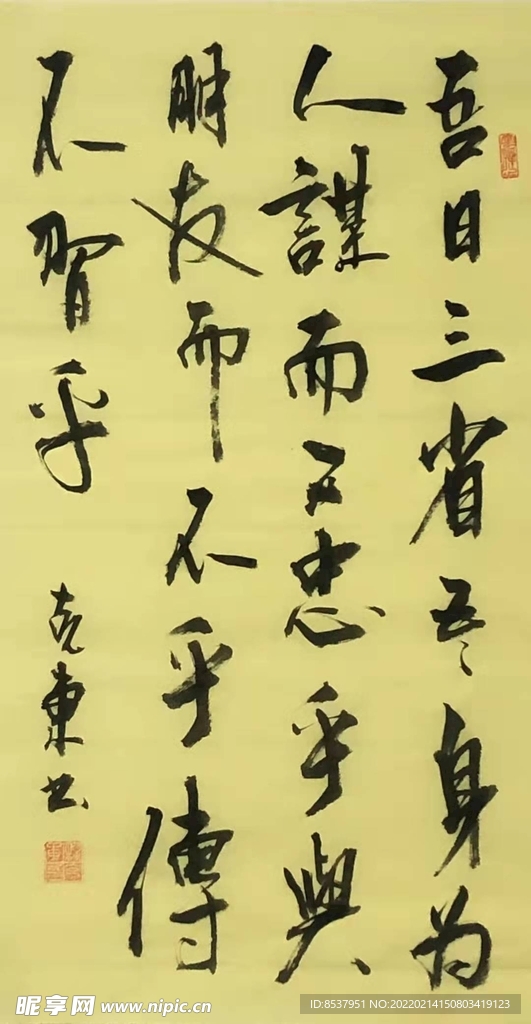 吾日三省吾身为
人謀而不忠乎與
朋友而不乎傳
不習乎
克東书
昵享网 www.nipic.cn
ID:8537951 NO:20220214150803419123